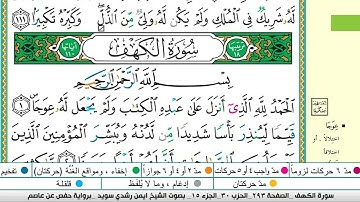 لَّهُۥ شَرِيكٌ فِي ٱلْمُلْكِ وَلَمْ يَكُن لَّهُۥ وَلِيٌّ مِّنَ ٱلذُّلِّ ۖ وَكَبِّرْهُ تَكْبِيرًۢا ١١١
سُورَةُ الْكَهْفِ
بِسْمِ ٱللَّهِ ٱلرَّحْمَٰنِ ٱلرَّحِيمِ
ٱلْحَمْدُ لِلَّهِ ٱلَّذِىٓ أَنزَلَ عَلَىٰ عَبْدِهِ ٱلْكِتَٰبَ وَلَمْ يَجْعَل لَّهُۥ عِوَجَا ۜ ١
قَيِّمًا لِّيُنذِرَ بَأْسًا شَدِيدًا مِّن لَّدُنْهُ وَيُبَشِّرَ ٱلْمُؤْمِنِينَ ٱلَّذِينَ
عِوَجًا
اختلافاً . أو
مدّ ٦ حركات لزوماً مدّ ٢ أو ٤ أو ٦ جوازاً إخفاء، ومواقع الغُنَّة (حركتان) تفخيم
مدّ واجب ٤ أو ٥ حركات مدّ حركتان إدغام ، وما لا يُلفظ قلقلة
سورة الكهف . الصفحة ٢٩٣ . الحزب ٣٠ . الجزء ١٥ . بصوت الشيخ ايمن رشدي سويد . برواية حفص عن عاصم